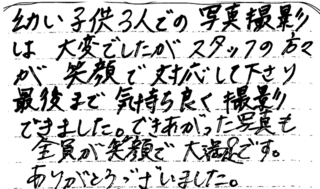 幼い子供3人での写真撮影
は大変でしたがスタッフの方々
が笑顔で対応して下さり
最後まで気持ち良く撮影
できました。できあがった写真も
全員が笑顔で大満足です。
ありがとうございました。